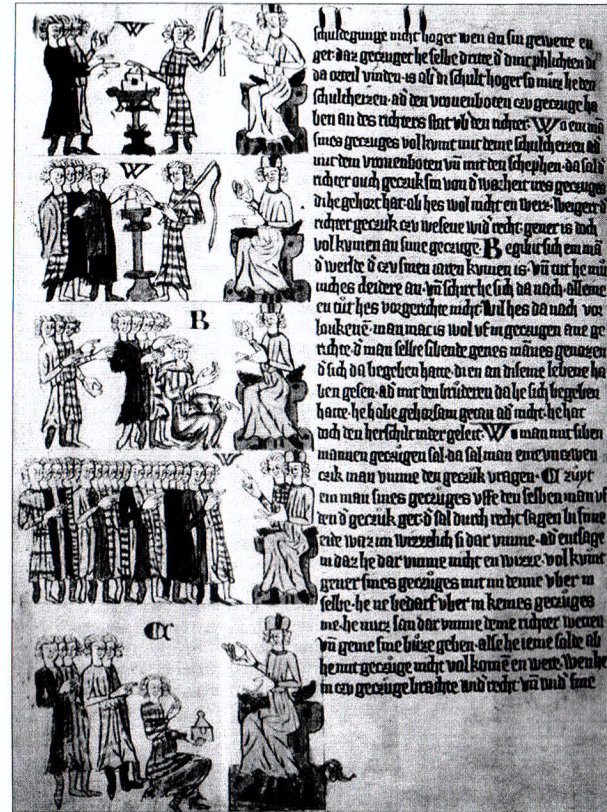 schuldegunge nicht hoger wen an sin gewette en
get· daz geczuget he selbe dritte d' dinc phlichten di
da orteil vinden· is ab di schult hoger so muz he den
schultheizen· ad' den vronenboten czu geczuge ha
ben an des richters stat vb' den richter· Wo ein mā
sines geczuges vol kumt mit deme schultheizen ad'
mit dem vronenboten vn̄ mit den schephen· da sal d'
richter ouch geczuk sin von d' warheit irres geczuges
di he gehort hat· ab hes wol nicht en were· Weigert d'
richter geczuk czu wesene wid' recht· gener is doch
vol kumen an sime geczuge· Begibit sich ein mā
d' werlde d' czu sinen iaren kumen is· vn̄ tut he mū
niches cleidere an· vn̄ schirt he sich da nach· alleine
en tut hes vor gerichte nicht· Wil hes da nach vor
loukenē· man mac is wol vf in geczugen ane ge
richte· d' man selbe sibende genes mānes genozen
d' sich da begeben hatte· di en an diseme lebene ha
ben gesen· ad' mit den bruderen da he sich begeben
hatte· he habe gehorsam getan ad' nicht· he hat
doch den herschilt nider geleit· Wo man mit siben
mannen geczugen sal· da sal man eine vn̄ czwen
czik man vmme den geczuk vragen· Czuyt
ein man sines geczuges vffe den selben man vf
den d' geczuk get· d' sal durch recht sagen bi sime
eide waz im wizzelich si dar vmme· ad' entsage
in daz he dar vmme nicht en wizze· vol kumt
gener sines geczuges mit im denne vber in
selbe· he ne bedarf vber in keines geczuges
me· he muz san dar vmme deme richter wetten
vn̄ geme sine buze geben· alse he ieme solde ab
he mit geczuge nicht vol kome en were· Wen he
in czu geczuge brachte wid' recht· vn̄ wid' sine
W
W
B
W
C